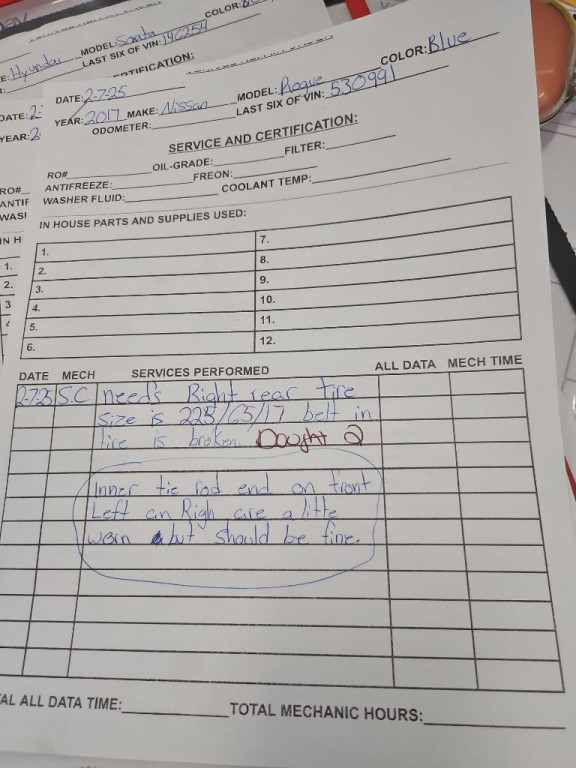 COLOR:
MODEL: Sonata
E: Hyundai
LAST SIX OF VIN: 196254
RTIFICATION:
DATE: 2-
YEAR: 2
RO#
ANTIF
WASI
IN H
1.
2.
3
DATE: 2-7-25
YEAR: 2017 MAKE: Nissan MODEL: Rogue COLOR: Blue
ODOMETER: LAST SIX OF VIN: 530991
SERVICE AND CERTIFICATION:
RO# OIL-GRADE: FILTER:
ANTIFREEZE: FREON:
WASHER FLUID: COOLANT TEMP:
IN HOUSE PARTS AND SUPPLIES USED:
1. 7.
2. 8.
3. 9.
4. 10.
5. 11.
6. 12.
DATE MECH SERVICES PERFORMED ALL DATA MECH TIME
2-7-25 S.C needs Right rear tire
Size is 225/65/17. belt in
tire is broken. 2
Inner tie rod end on front
Left an Righ are a litte
worn but should be fine.
AL ALL DATA TIME: TOTAL MECHANIC HOURS: